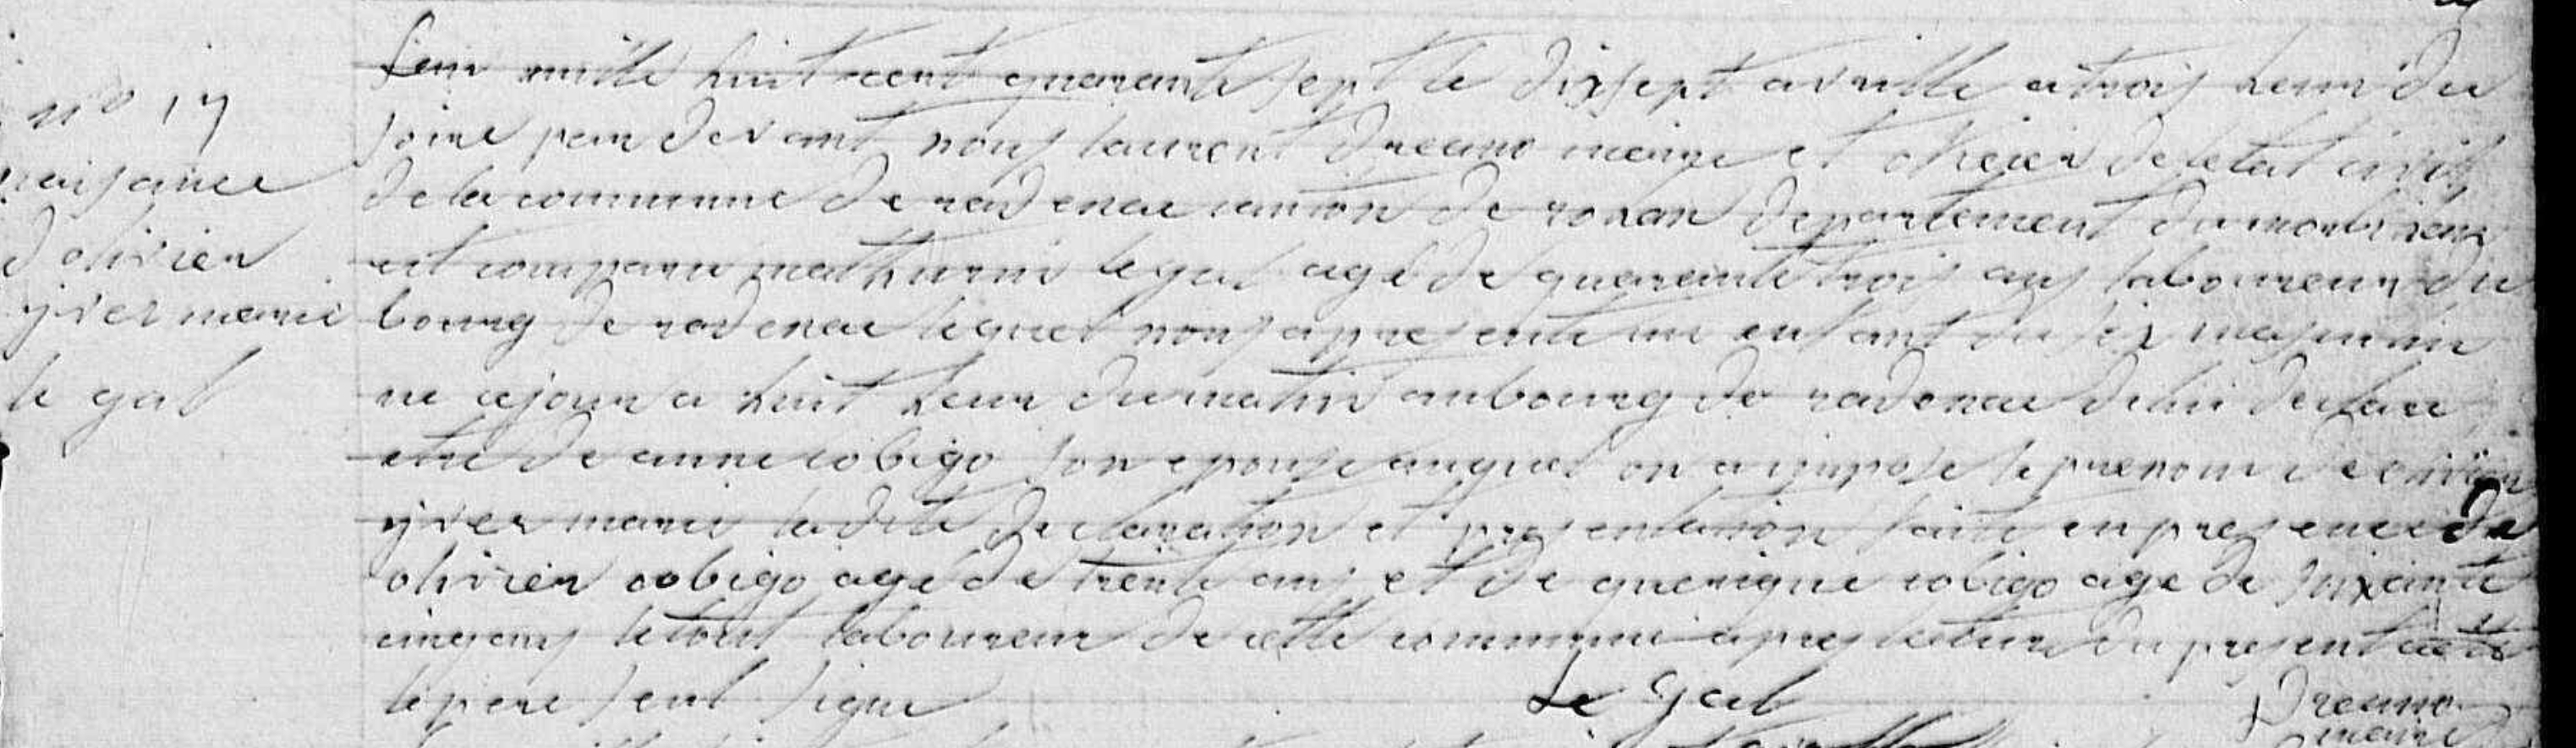 n° 17
naisance
d olivier
yves marie
le gal
Lan mille huit cent quarante sept le dixsept avrille a trois heur du
soire par devant nous laurent Dreano maire et oficier de letat civil
de la commune de radenac canton de rohan departement du morbihan
est comparu mathurin legal agé de quarante trois ans laboureur du
bourg de radenac lequel nous a presente un enfant du sex masculin
ne cejour a huit heur du matin au bourg de radenac de lui declare
et de anne cobigo son epouse auquel on a impose le prenom de olivier
yves marie la dite declaration et presentation faite en presence de
olivier cobigo age de trente ans et de cobigo age de soixante
cinq ans le tout laboureur de cette commune apres lecture du present acte
le pere seul signe
Le Gal
Dreano
maire